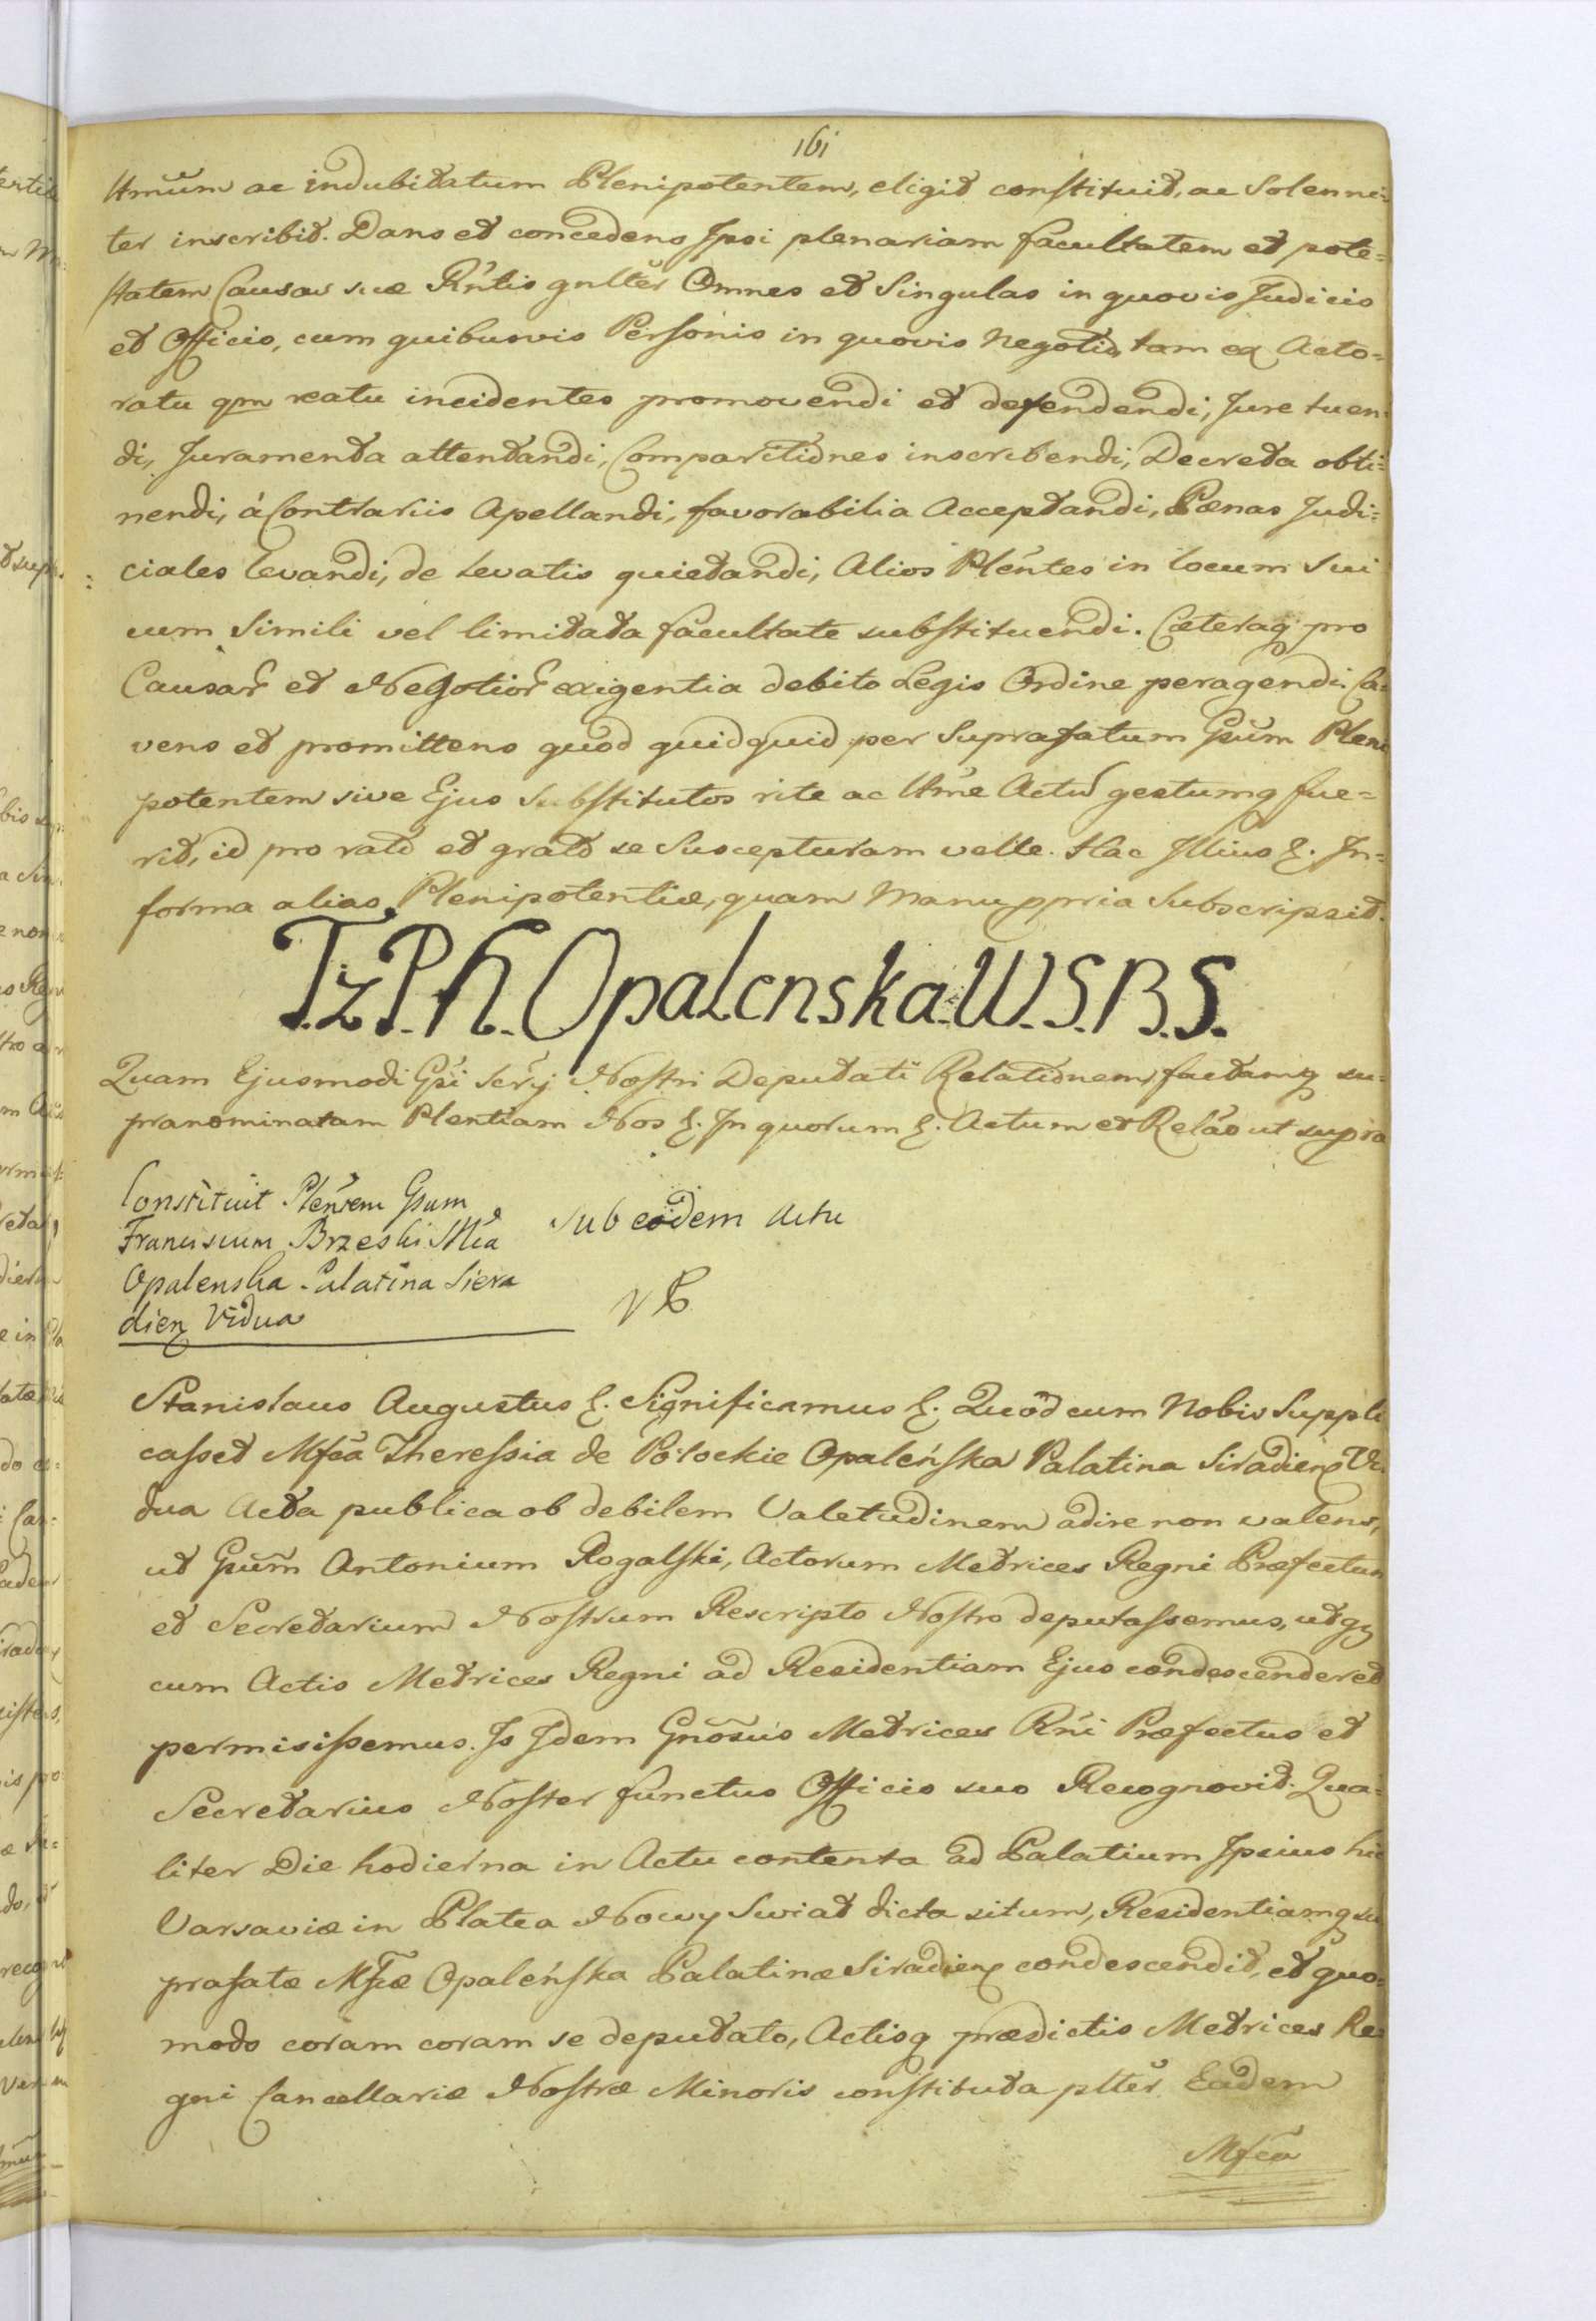 161
Ltmum ac indubitatum Plenipotentem, eligit constituit, ac Solenni=
ter inscribit. Dans et concedens Ipsi plenariam facultatem et pote=
statem Causas suæ Rñtis gnlter Omnes et Singulas in quovis Judicio
et Officio, cum quibusvis Personis in quovis Negotio, tam ex Acto=
ratu qm reatu incidentes promovendi et defendendi, Jure tuen=
di, Juramenta attentandi, Comparitiones inscribendi, Decreta obti=
nendi, à Contrariis Apellandi, favorabilia Acceptandi, Pænas Judi=
ciales levandi, de levatis quietandi, Alios Pleñtes in locum Sui
cum Simili vel limitata facultate substituendi. Cæteraq pro
Causar et Negotior exigentia debito Legis Ordine peragendi. Ca=
vens et promittens quod quidquid per Suprafatum Gsum Pleni
potentem sive Ejus Substitutos rite ac ltme Actu gestumq fue=
rit, id pro rato et grato se Suscepturam velle. Hac Illius &. In=
forma alias Plenipotentiæ, quam Manu ppria Subscripsit.
T.z P. H. Opalenska. W. S. B. S.
Quam Ejusmodi Gsi Scrij Nostri Deputati Relationem, factamq su=
pranominatam Plentiam Nos &. In quorum &. Actum et Relao ut supra
Constituit Pleñtem Gsum
Franciscum Brzeski Mca
Opalenska Palatina Siera
dien Vidua
Sub eodem Actu
Stanislaus Augustus &. Significamus &. Quod cum Nobis Suppli
casset Mfca Theressia de Potockie Opaleńska Palatina Siradien Vi
dua Acta publica ob debilem Valetudinem adire non valens,
ut Gsum Antonium Rogalski, Actorum Metrices Regni Præfectum
et Secretarium Nostrum Rescripto Nostro deputassemus, utq
cum Actis Metrices Regni ad Residentiam Ejus condescenderet
permisissemus. Is Idem Gnosus Metrices Rñi Præfectus et
Secretarius Noster functus Officio suo Recognovit. Qua=
liter Die hodierna in Actu contenta ad Palatium Ipsius hic
Varsaviæ in Platea Nowy Swiat dicta situm, Residentiamq su
prafatæ Mfcæ Opaleńska Palatinæ Siradien condescendit, et quo=
modo coram coram se deputato, Actisq prædictis Metrices Re
gni Cancellariæ Nostræ Minoris constituta plter Eadem
Mfca